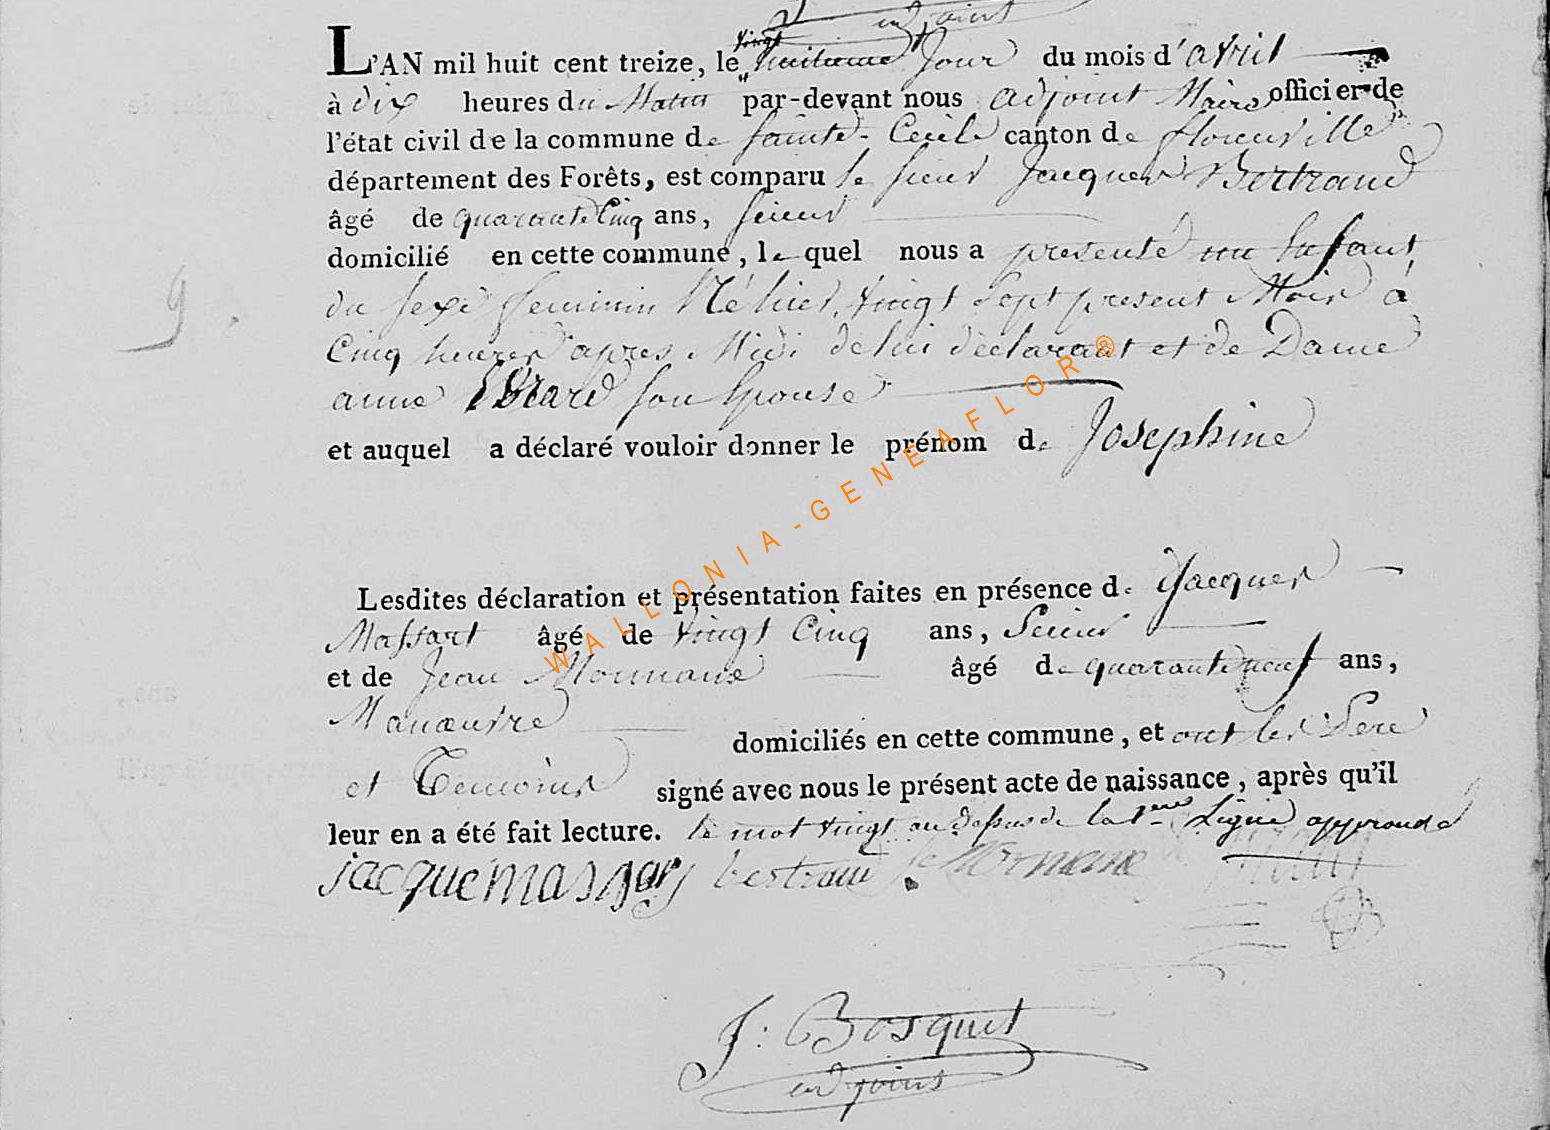 adjoint
L'AN mil huit cent treize, le vingt huitieme Jour du mois d'avril
à dix heures du Matin par-devant nous adjoint Maire officier de
l'état civil de la commune de Sainte-Cecile canton de florenville
département des Forêts, est comparu le sieur Jacques Bertrand
âgé de quarante Cinq ans, scieur
domicilié en cette commune, le quel nous a presenté un Enfant
du sexe feminin Né hier, vingt Sept present Mois à
Cinq heures apres Midi de lui déclarant et de Dame
anne Evrard son Epouse
et auquel a déclaré vouloir donner le prénom de Josephine
9.
Lesdites déclaration et présentation faites en présence de Jacques
Massart âgé de vingt Cinq ans, Scieur
et de Jean Mormane âgé de quarante neuf ans,
Manœuvre domiciliés en cette commune, et ont les Pere
et Temoins signé avec nous le présent acte de naissance, après qu'il
leur en a été fait lecture. le mot vingt au dessus de la 1ere Ligne approuvé
jacque massar bertrand Mormane
J: Bosquet
adjoint
WALLONIA-GENEAFLOR®